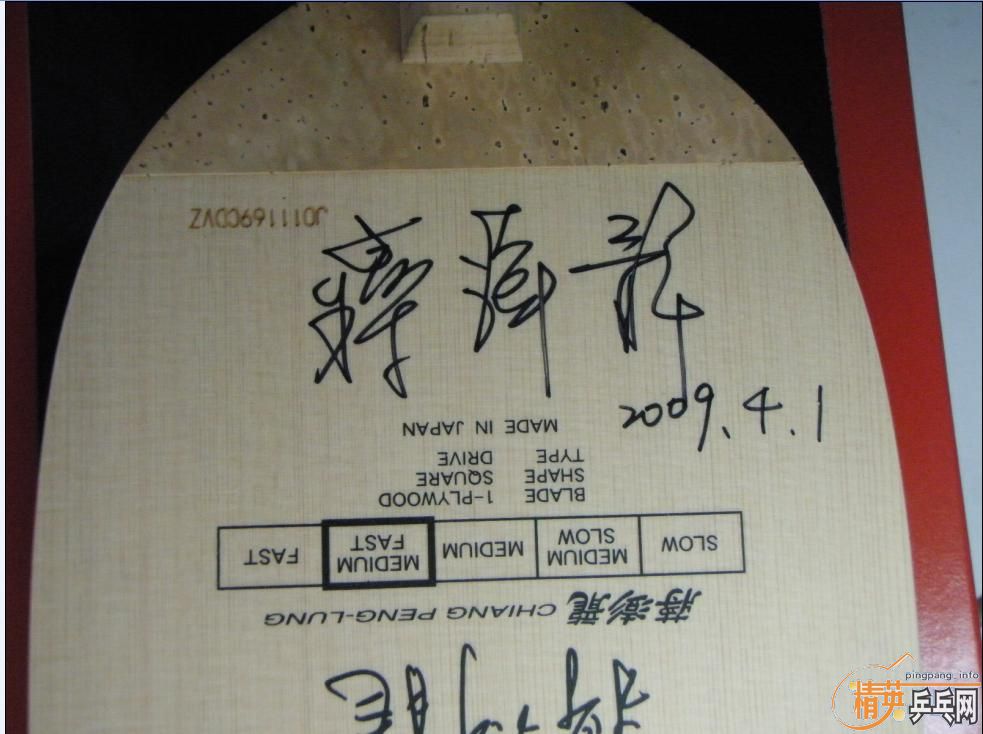 JO111169CDVZ
蔣澎龍
2009.4.1
MADE IN JAPAN
TYPE DRIVE
SHAPE SQUARE
BLADE 1-PLYWOOD
SLOW MEDIUM SLOW MEDIUM MEDIUM FAST FAST
蔣澎龍 CHIANG PENG-LUNG
pingpang.info
精英乒乓网